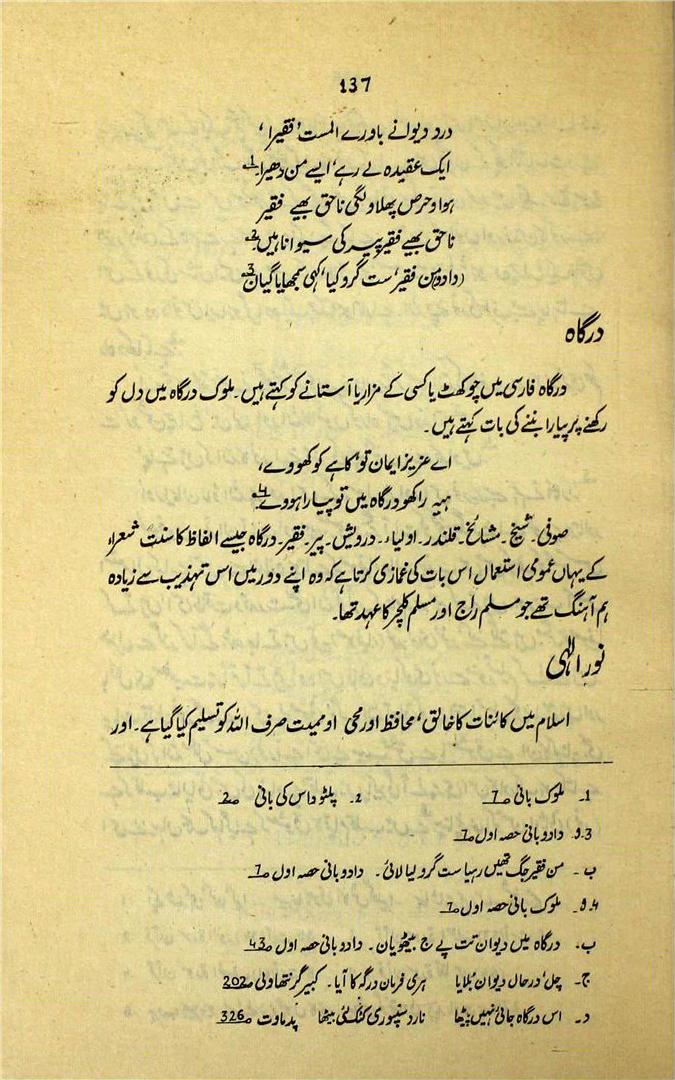 137
درد دیوانے باورے المست 'فقیرا'
ایک عقیدہ لے رہے' ایسے من دھیرا۔1
ہوا و حرص پھلاو لگی ناحق بھیے فقیر
ناحق بھیے فقیر پیر کی سیوا ناہیں۔2
(دادو) من فقیر' ست گرو کیا' کہی سمجھایا گیان۔3
درگاہ
درگاہ فارسی میں چوکھٹ یا کسی کے مزار یا آستانے کو کہتے ہیں۔ ملوک درگاہ میں دل کو
رکھنے پر پیارا بننے کی بات کہتے ہیں۔
اے عزیز ایمان تو' کاہے کو کھووے،
ہیہ راکھو درگاہ میں تو پیارا ہووے۔4
صوفی۔ شیخ۔ مشائخ۔ قلندر۔ اولیاء۔ درویش۔ پیر۔ فقیر۔ درگاہ جیسے الفاظ کا سنت شعراء
کے یہاں عمومی استعمال اس بات کی غمازی کرتا ہے کہ وہ اپنے دور میں اس تہذیب سے زیادہ
ہم آہنگ تھے جو مسلم راج اور مسلم کلچر کا عہد تھا۔
نور الٰہی
اسلام میں کائنات کا خالق' محافظ اور محی او ممیت صرف اللہ کو تسلیم کیا گیا ہے۔ اور
1۔ ملوک بانی صـ7 2۔ پلٹو داس کی بانی صـ2
3۔و دادو بانی حصہ اول صـ7
ب۔ من فقیر جگ تھیں رہیا ست گرو لیا لائی۔ دادو بانی حصہ اول صـ7
4۔و۔ ملوک بانی حصہ اول صـ7
ب۔ درگاہ میں دیوان تت پے ج بیٹھو پان۔ دادو بانی حصہ اول صـ43
ج۔ چل' درحال دیوان بلایا ہری فرمان درگہ کا آیا۔ کبیر گرنتھاولی صـ202
د۔ اس درگاہ جائی نہیں پیٹھا نارد پنپوری کٹک لئی بیٹھا پدماوت صـ326